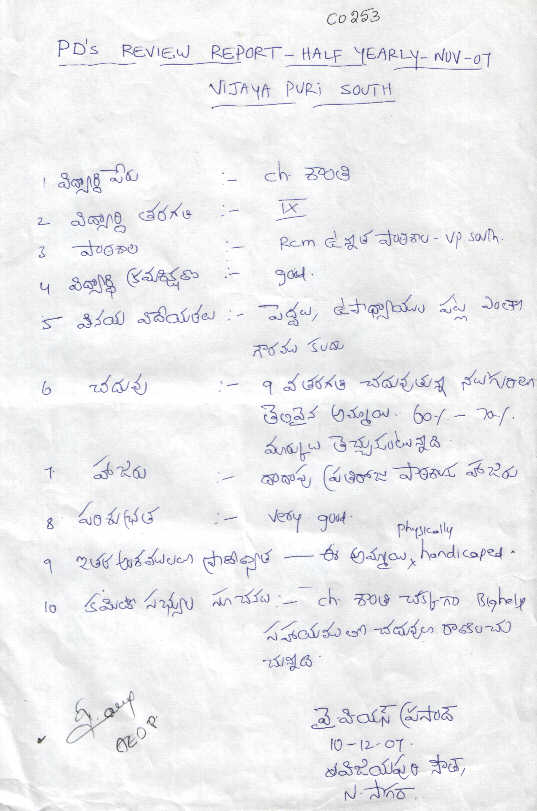 CO253
PD's REVIEW REPORT - HALF YEARLY - NOV-07
VIJAYA PURI SOUTH
1 విద్యార్థి పేరు :- ch శాంతి
2 విద్యార్థి తరగతి :- IX
3 పాఠశాల :- Rcm ఉన్నత పాఠశాల - VP south.
4 విద్యార్థి క్రమశిక్షణ :- good.
5 వినయ విదేయతలు :- పెద్దలు, ఉపాధ్యాయుల పట్ల ఎంతో
గౌరవము కలదు
6 చదువు :- 9 వ తరగతి చదువుతున్న
తెలివైన అమ్మాయి. 60% - 70%.
మార్కులు తెచ్చుకుంటున్నది.
7 హాజరు :- దాదాపు ప్రతిరోజు పాఠశాల హాజరు
8 పరిశుభ్రత :- very good.
physically
9 ఇతర అంశములలో ప్రావీణ్యత — ఈ అమ్మాయి x handicaped.
10 కమిటీ సభ్యుల సూచనలు :- ch శాంతి చక్కగా Bighelp
సహాయముతో చదువులో రాణించు
చున్నది.
AEOP
వై వియస్ ప్రసాద్
10-12-07.
విజయపురి సౌత్,
N. సాగర్.